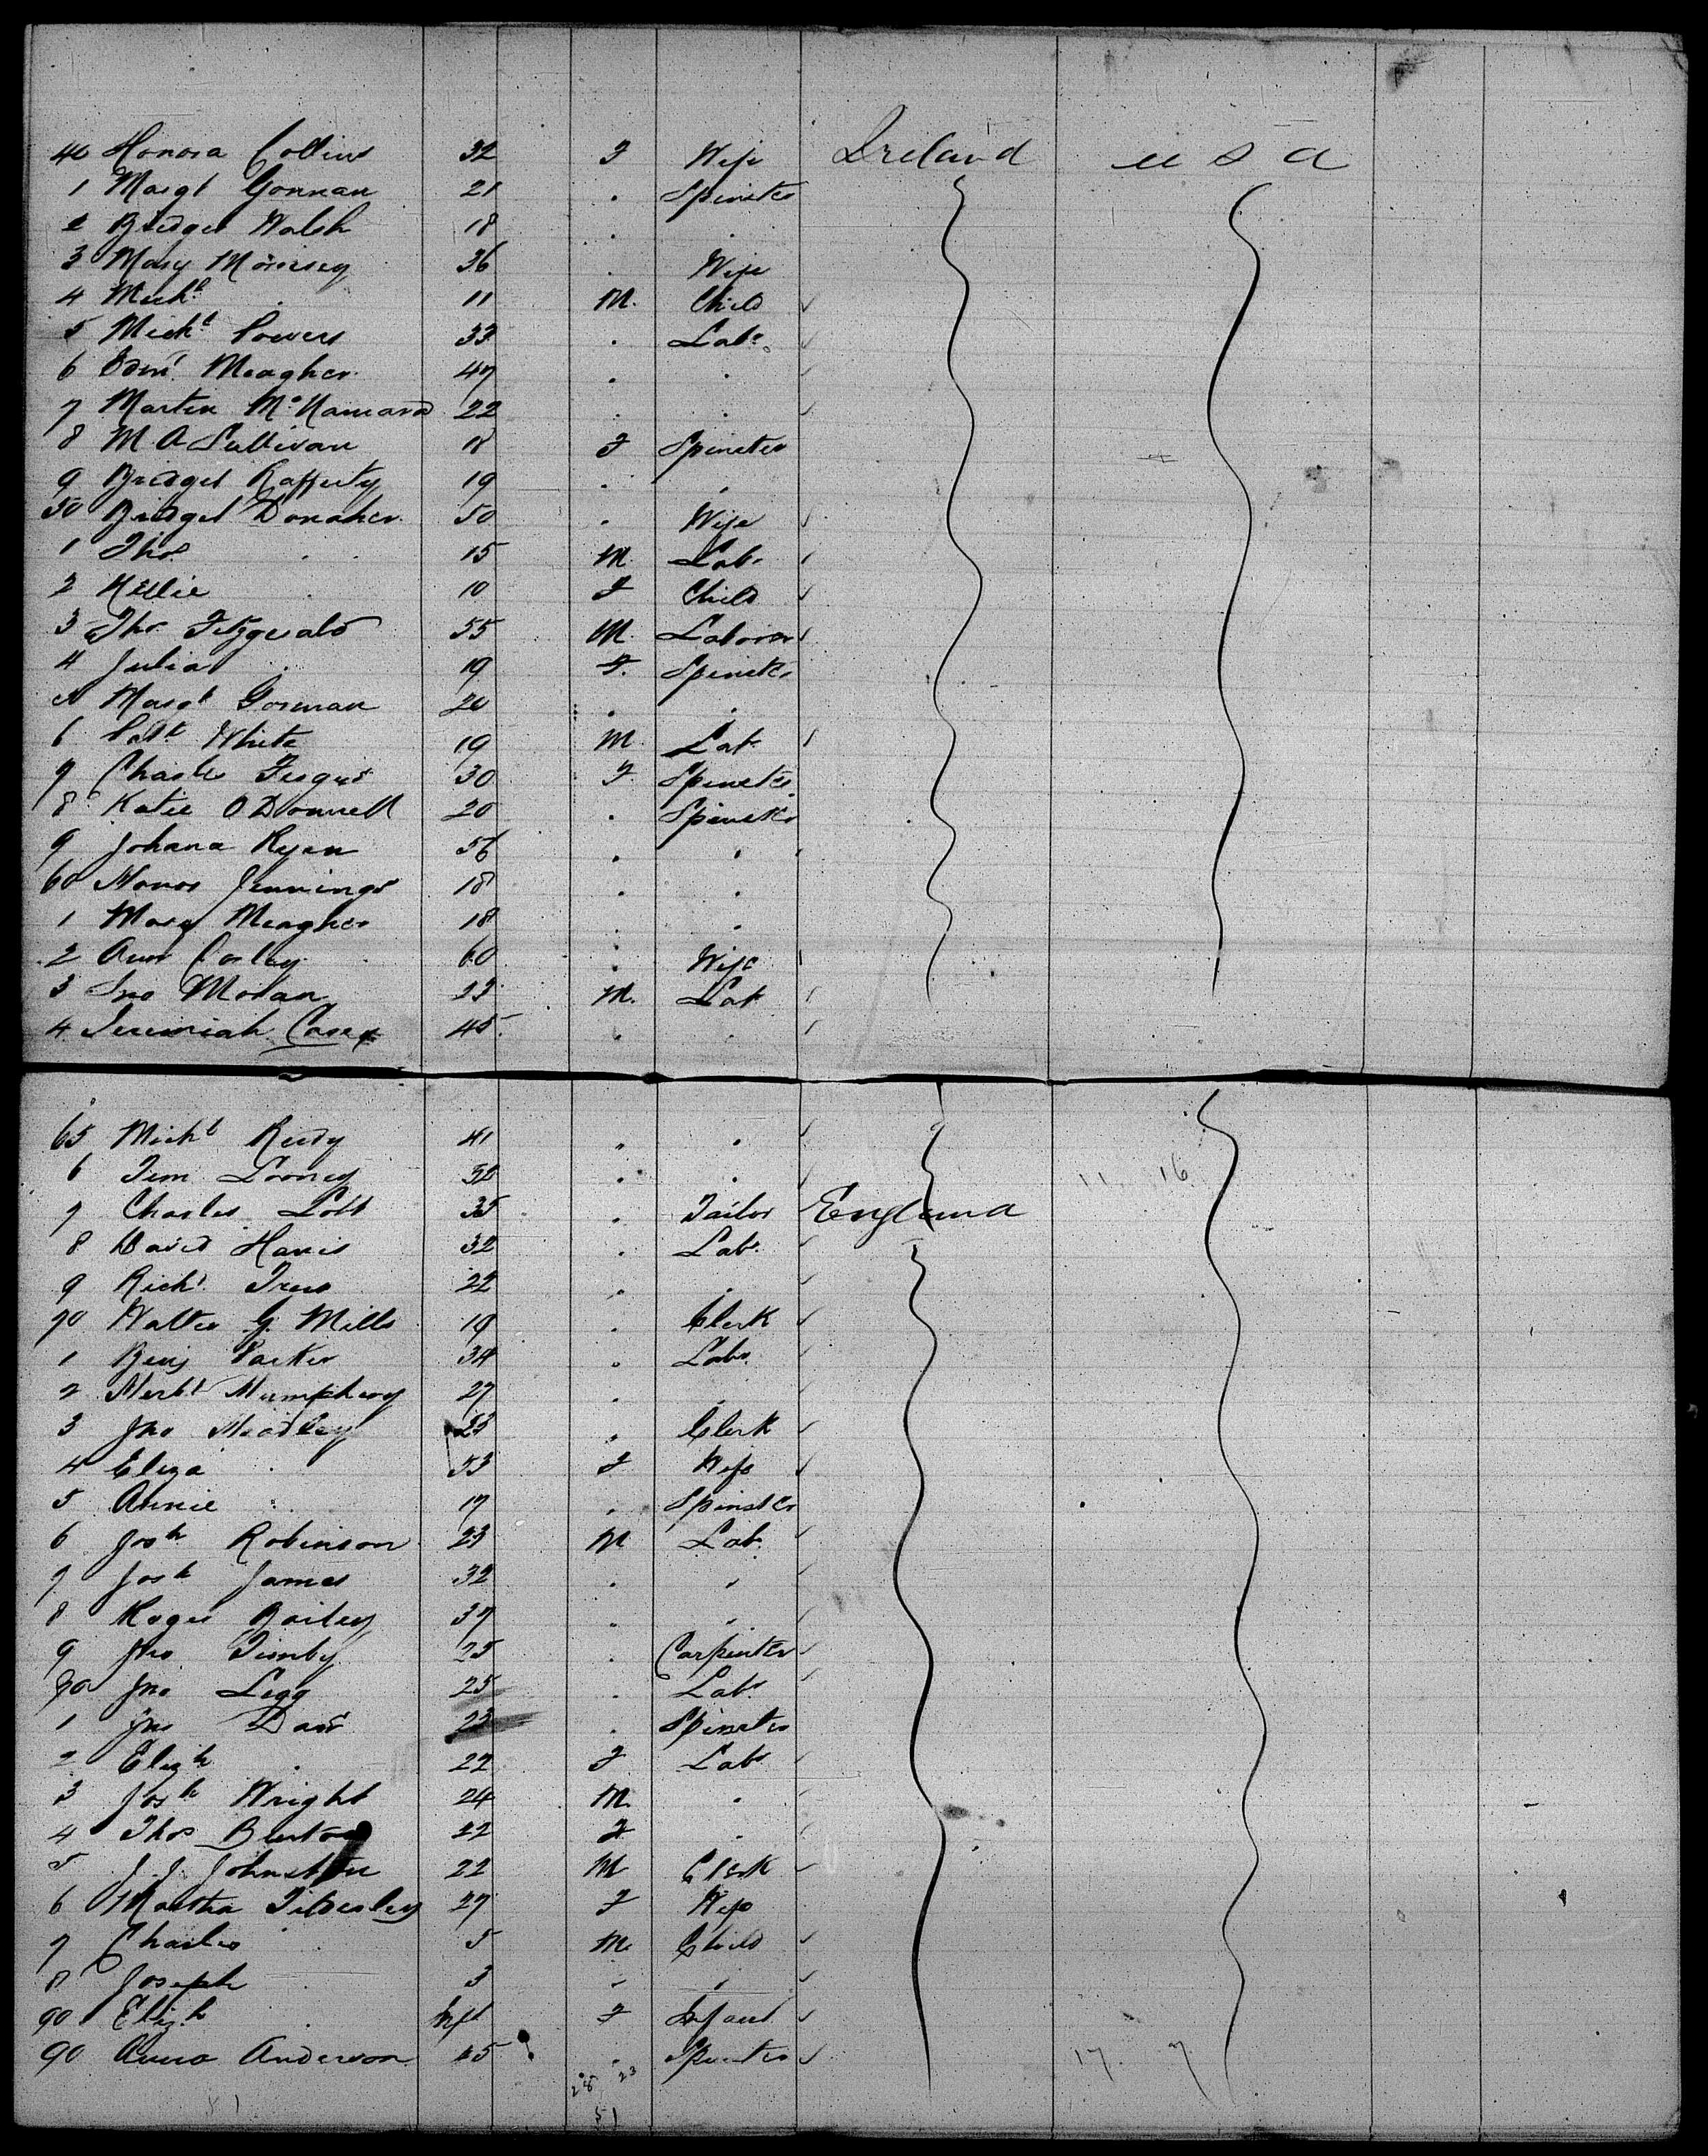 40 Honora Collins 32 F Wife Ireland U S A
1 Margt Gorman 21 . Spinster
2 Bridget Walsh 18 . .
3 Mary Morrisey 36 . Wife
4 Michl . 11 M. Child
5 Michl Powers 33 . Labr
6 Edmd Meagher 47 . .
7 Martin McNamara 22 . .
8 M A Sullivan 18 F Spinster
9 Bridget Rafferty 19 . .
50 Bridget Donaher 50 . Wife
1 Thos . 15 M. Labr
2 Nellie . 10 F Child
3 Thos Fitzgerald 55 M. Laborer
4 Julia . 19 F. Spinster
5 Margt Gorman 20 . .
6 Patk White 19 M Labr
7 Charles Fergus 30 F. Spinster
8 Katie O Donnell 20 . Spinster
9 Johana Ryan 56 . .
60 Honor Jennings 18 . .
1 Mary Meagher 18 . .
2 Ann Corley 60 . Wife
3 Jno Moran 23 M. Lab
4 Jeremiah Casey 45 . .
65 Michl Reidy 41 . .
6 Tim Looney 32 . . 11 16
7 Charles Lott 35 . Tailor England
8 David Harris 32 . Labr
9 Richd 22 . .
70 Walter G. Mills 19 . Clerk
1 Benj Parker 34 . Labr
2 Herbt Humphrey 27 . .
3 Jno Headley 53 . Clerk
4 Eliza . 53 F Wife
5 Annie . 17 . Spinster
6 Josh Robinson 23 M Lab
7 Josh James 32 . .
8 Roger Bailey 37 . .
9 Jno Timby 25 . Carpenter
80 Jno Legg 25 . Labr
1 Jno 23 . Spinster
2 Elizh . 22 F Labr
3 Josh Wright 24 M. .
4 Thos Burton 22 F .
5 J. J. Johnston 22 M Clerk
6 Martha Titterley 27 F Wife
7 Charles . 5 M. Child
8 Joseph . 3 . .
90 Elizh . Inft F Infant
90 Anna Anderson 45 . Spinster 17 7
28 23
51